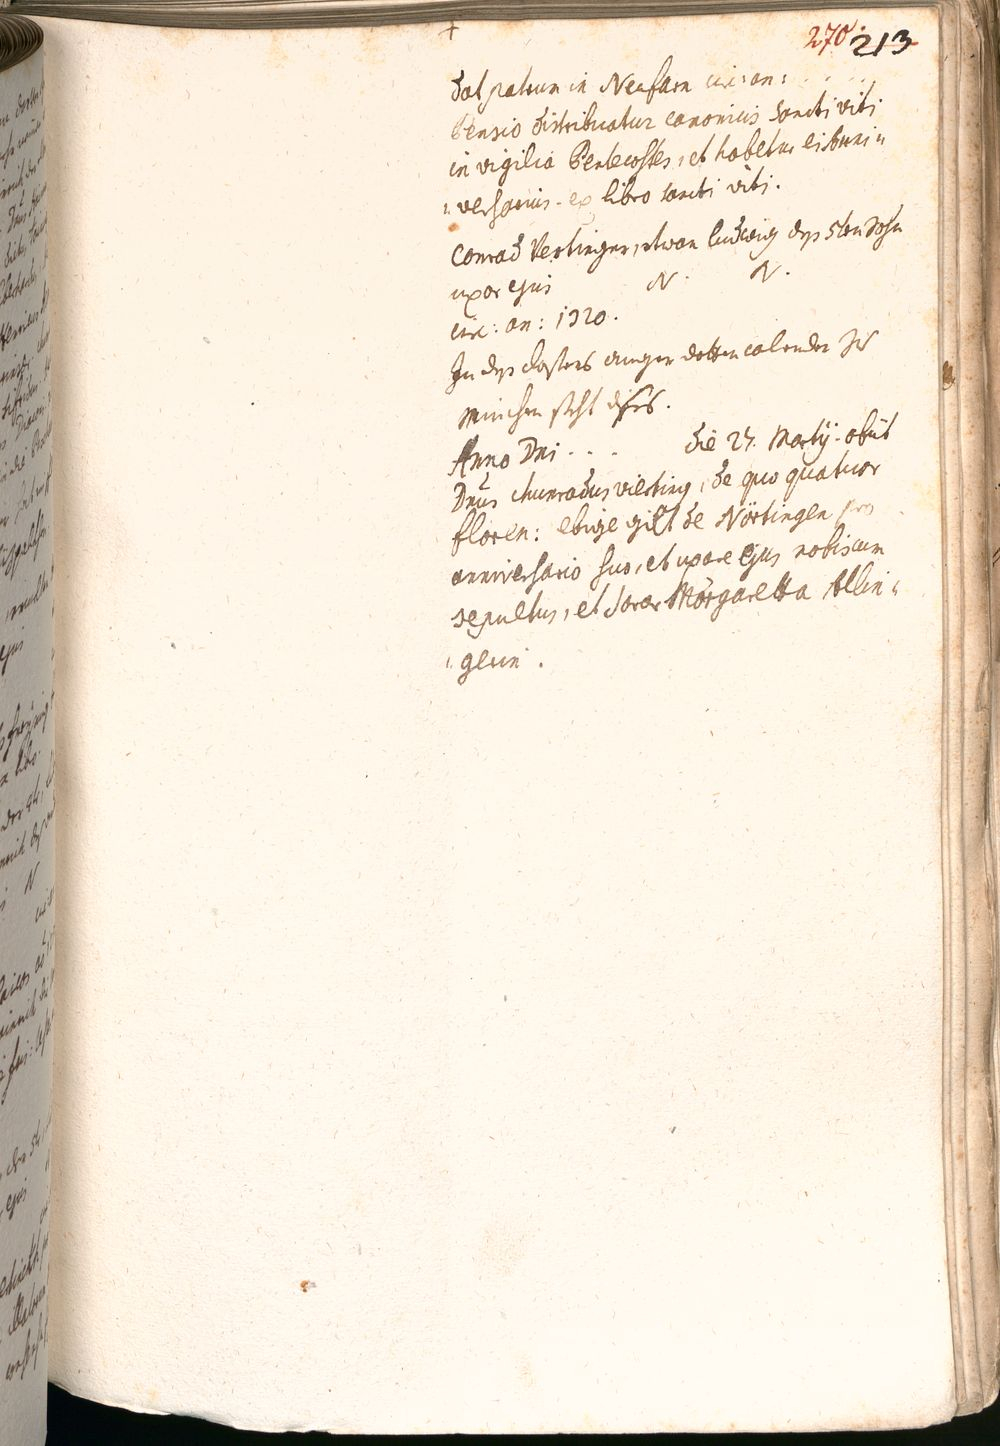 270. 213
dat pratum in Neufarn circ: an: . . . .
Pensio distribuatur canonicis sancti viti
in vigilia Pentecostes, et habetur eis anni=
=versarius. ex libro sancti viti.
Conrad Vertinger, etwan ludwig dess 5ten Sohn
uxor ejus N. N.
circ: an: 1320.
In dess closters anger dotten calender zu
München steht dises.
Anno Dni . . . die 27. Martij. obiit
Dnus chunradus vierting, de quo quatuor
floren: ebige gilt de Nörtingen pro
anniversario suo, et uxore ejus nobiscum
sepultus, et soror Margaretta Allin=
=gerin.